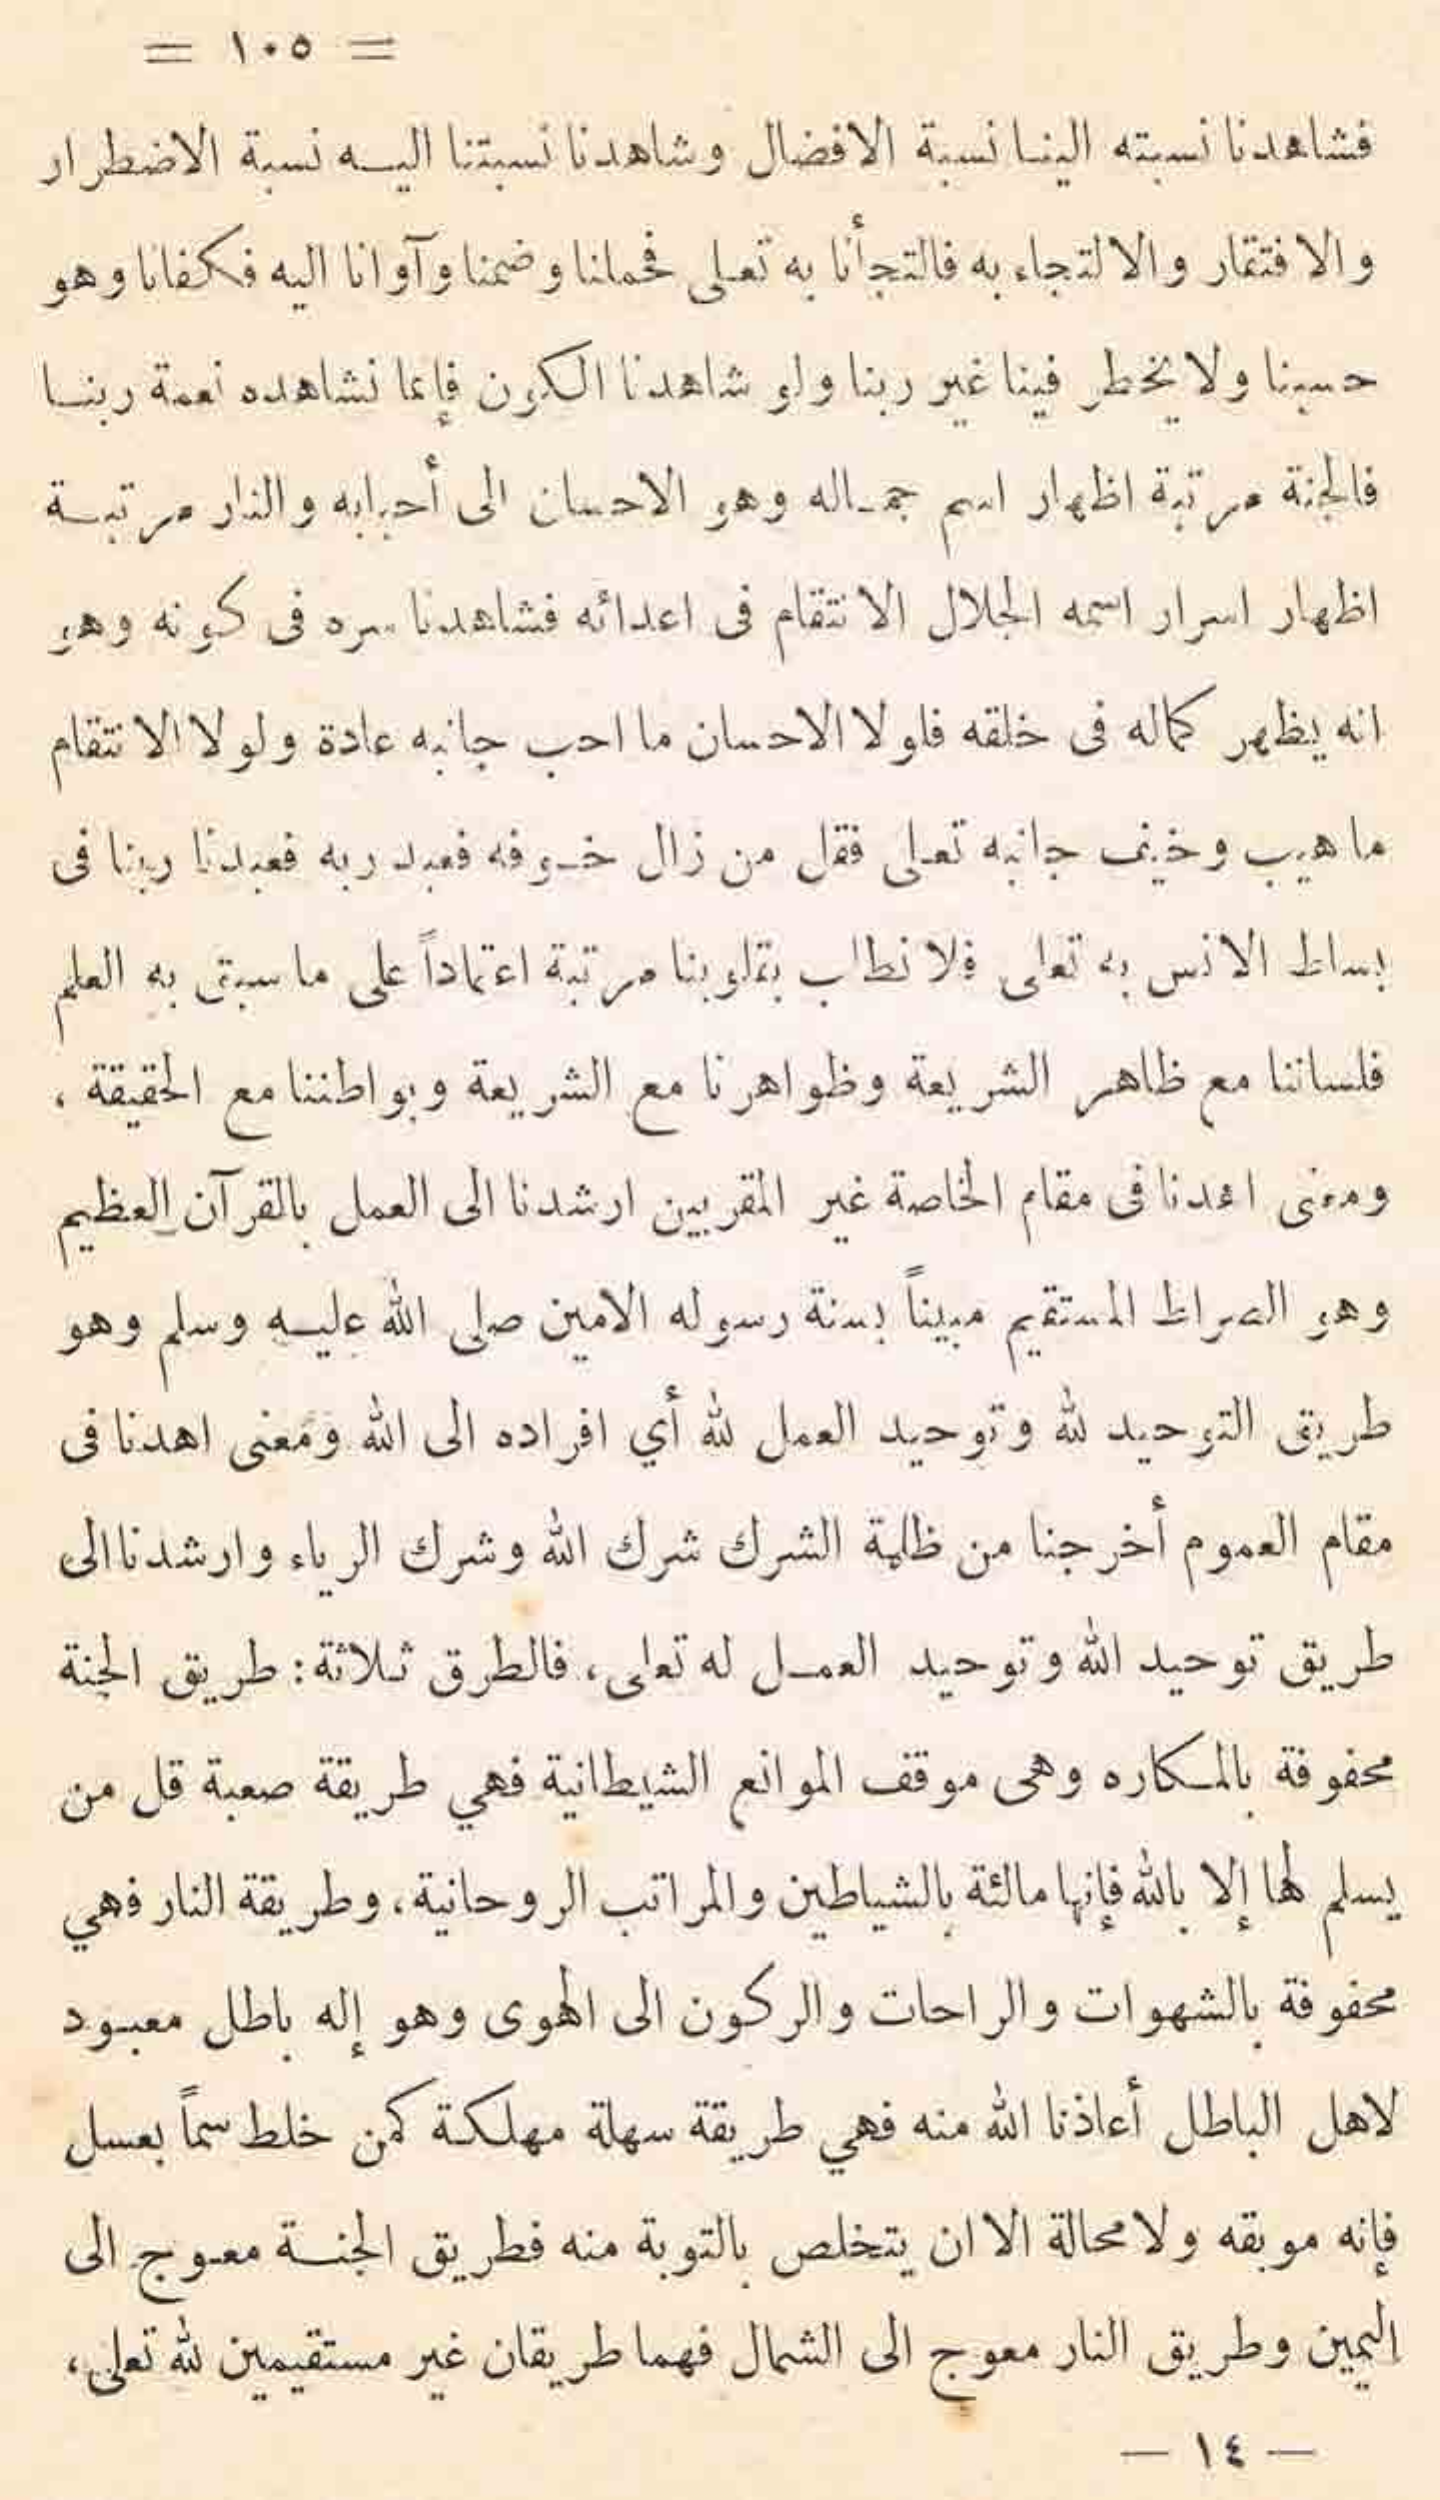 = ١٠٥ =
فشاهدنا نسبته الينا نسبة الافضال وشاهدنا نسبتنا اليه نسبة الاضطرار
والافتقار والالتجاء به فالتجأنا به تعلى فحمانا وضمنا وآوانا اليه فكفانا وهو
حسبنا ولا يخطر فينا غير ربنا ولو شاهدنا الكون فإنما نشاهده نعمة ربنا
فالجنة مرتبة اظهار اسم جماله وهو الاحسان الى أحبابه والنار مرتبة
اظهار اسرار اسمه الجلال الانتقام فى اعدائه فشاهدنا سره فى كونه وهو
انه يظهر كماله فى خلقه فلولا الاحسان ما احب جانبه عادة ولولا الانتقام
ما هيب وخيف جانبه تعلى فقل من زال خوفه فعبد ربه فعبدنا ربنا فى
بساط الانس به تعلى فلا نطلب بقلوبنا مرتبة اعتماداً على ما سبق به العلم
فلساننا مع ظاهر الشريعة وظواهرنا مع الشريعة وبواطننا مع الحقيقة ،
ومعنى اهدنا فى مقام الخاصة غير المقربين ارشدنا الى العمل بالقرآن العظيم
وهو الصراط المستقيم مبيناً بسنة رسوله الامين صلى الله عليه وسلم وهو
طريق التوحيد لله وتوحيد العمل لله أي افراده الى الله ومعنى اهدنا فى
مقام العموم أخرجنا من ظلمة الشرك شرك الله وشرك الرياء وارشدنا الى
طريق توحيد الله وتوحيد العمل له تعلى، فالطرق ثلاثة: طريق الجنة
محفوفة بالمكاره وهى موقف الموانع الشيطانية فهي طريقة صعبة قل من
يسلم لها إلا بالله فإنها مالئة بالشياطين والمراتب الروحانية، وطريقة النار فهي
محفوفة بالشهوات والراحات والركون الى الهوى وهو إله باطل معبود
لاهل الباطل أعاذنا الله منه فهي طريقة سهلة مهلكة كمن خلط سماً بعسل
فإنه موبقه ولا محالة الا ان يتخلص بالتوبة منه فطريق الجنة معوج الى
اليمين وطريق النار معوج الى الشمال فهما طريقان غير مستقيمين لله تعلى،
— ١٤ —